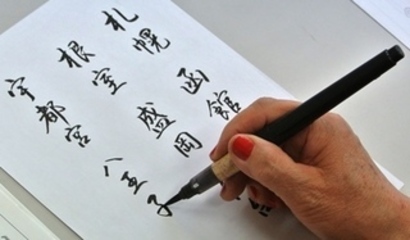 札幌 函館
根室 盛岡
宇都宮 八王子